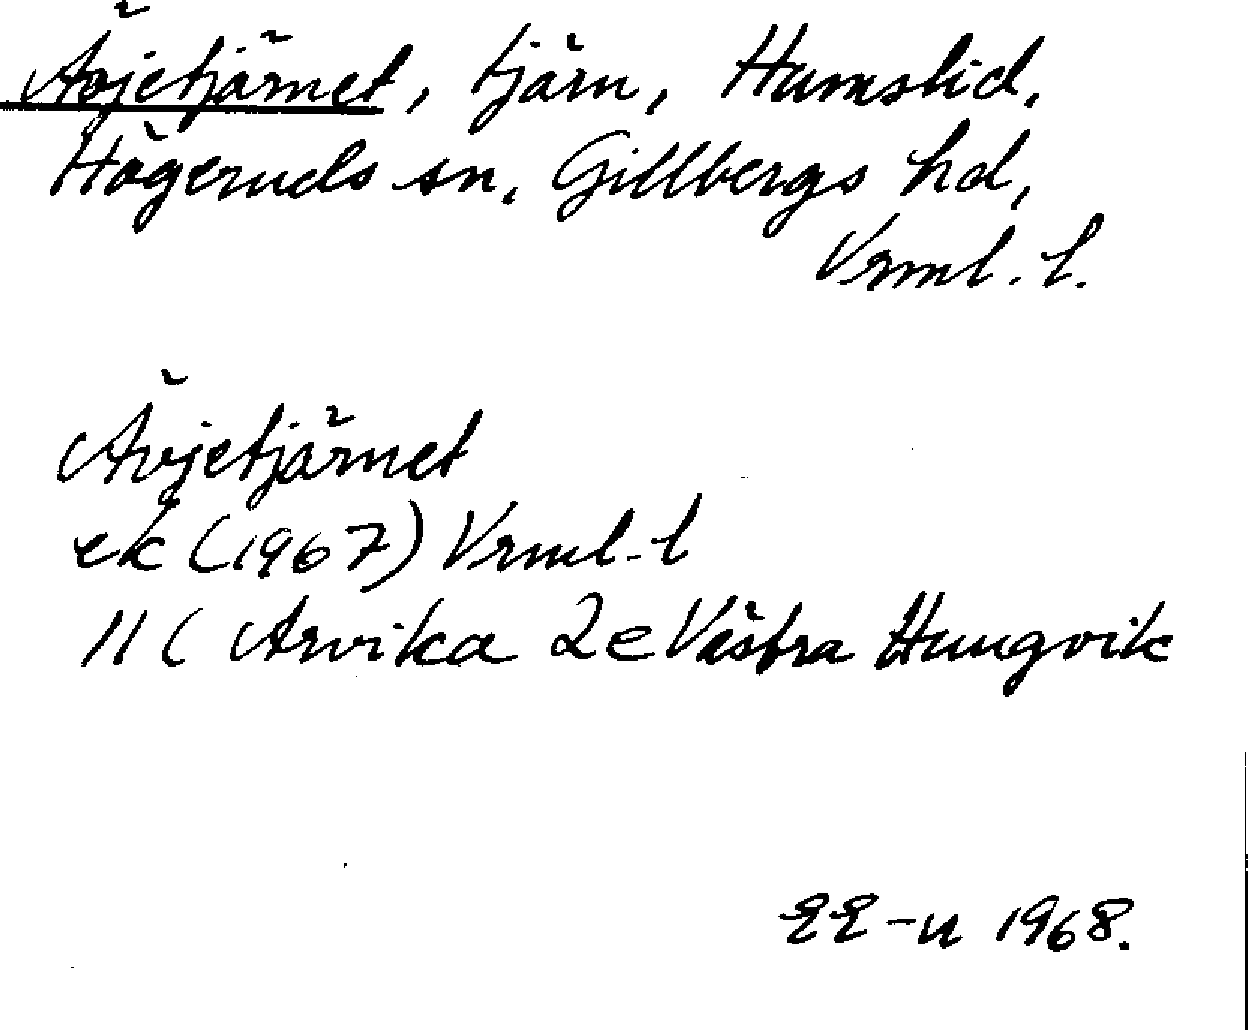 Ävjetjärnet, tjärn, Humslid,
Högeruds sn, Gillbergs hd,
Vrml. l.
Ävjetjärnet
ek (1967) Vrml. l
11 C Arvika 2e Västra Hungvik
EE-n 1968.